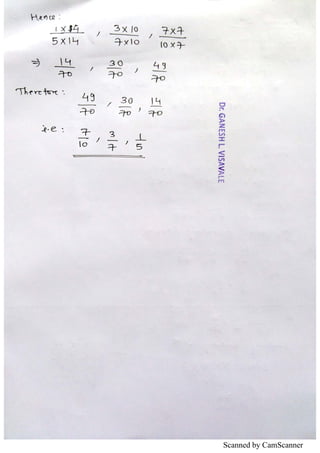 Hence:
1×14/5×14 , 3×10/7×10 , 7×7/10×7
⇒ 14/70 , 30/70 , 49/70
Therefore:
49/70 , 30/70 , 14/70
i.e: 7/10 , 3/7 , 1/5
Dr. GANESH L. VISAVALE
Scanned by CamScanner